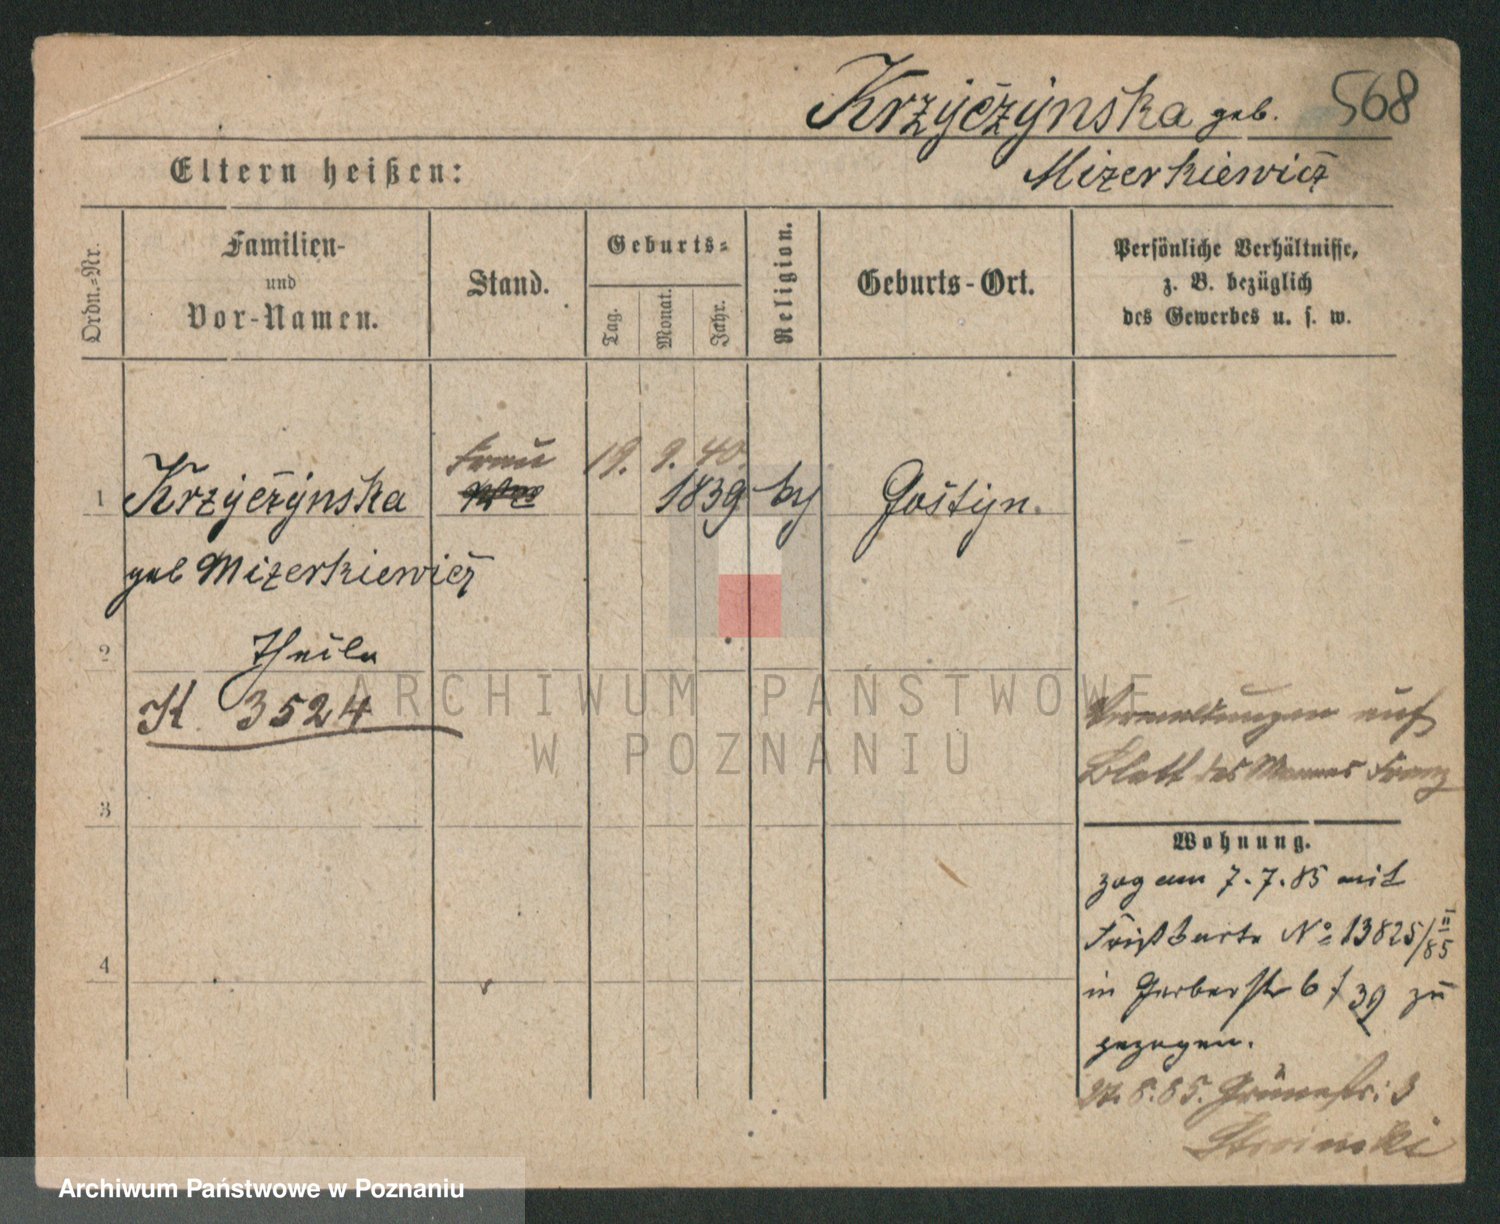 Krzyczynska geb. 568
Mizerkiewicz
Eltern heißen:
Ordn.-Nr.
Familien-
und
Vor-Namen.
Stand.
Geburts-
Tag.
Monat.
Jahr.
Religion.
Geburts-Ort.
Persönliche Verhältnisse,
z. B. bezüglich
des Gewerbes u. s. w.
Frau 19. 9. 40.
1 Krzyczynska 1839 Gostyn.
geb Mizerkiewicz
2
K 3524
ARCHIWUM PAŃSTWOWE
W POZNANIU
auf
Blatt des Mannes Franz
3
Wohnung.
zog am 7.7.85 mit
No 13825/II 85
4
in Gerberstr 6 / 39 zu
gezogen.
27.8.85. Grünestr: 3
Archiwum Państwowe w Poznaniu